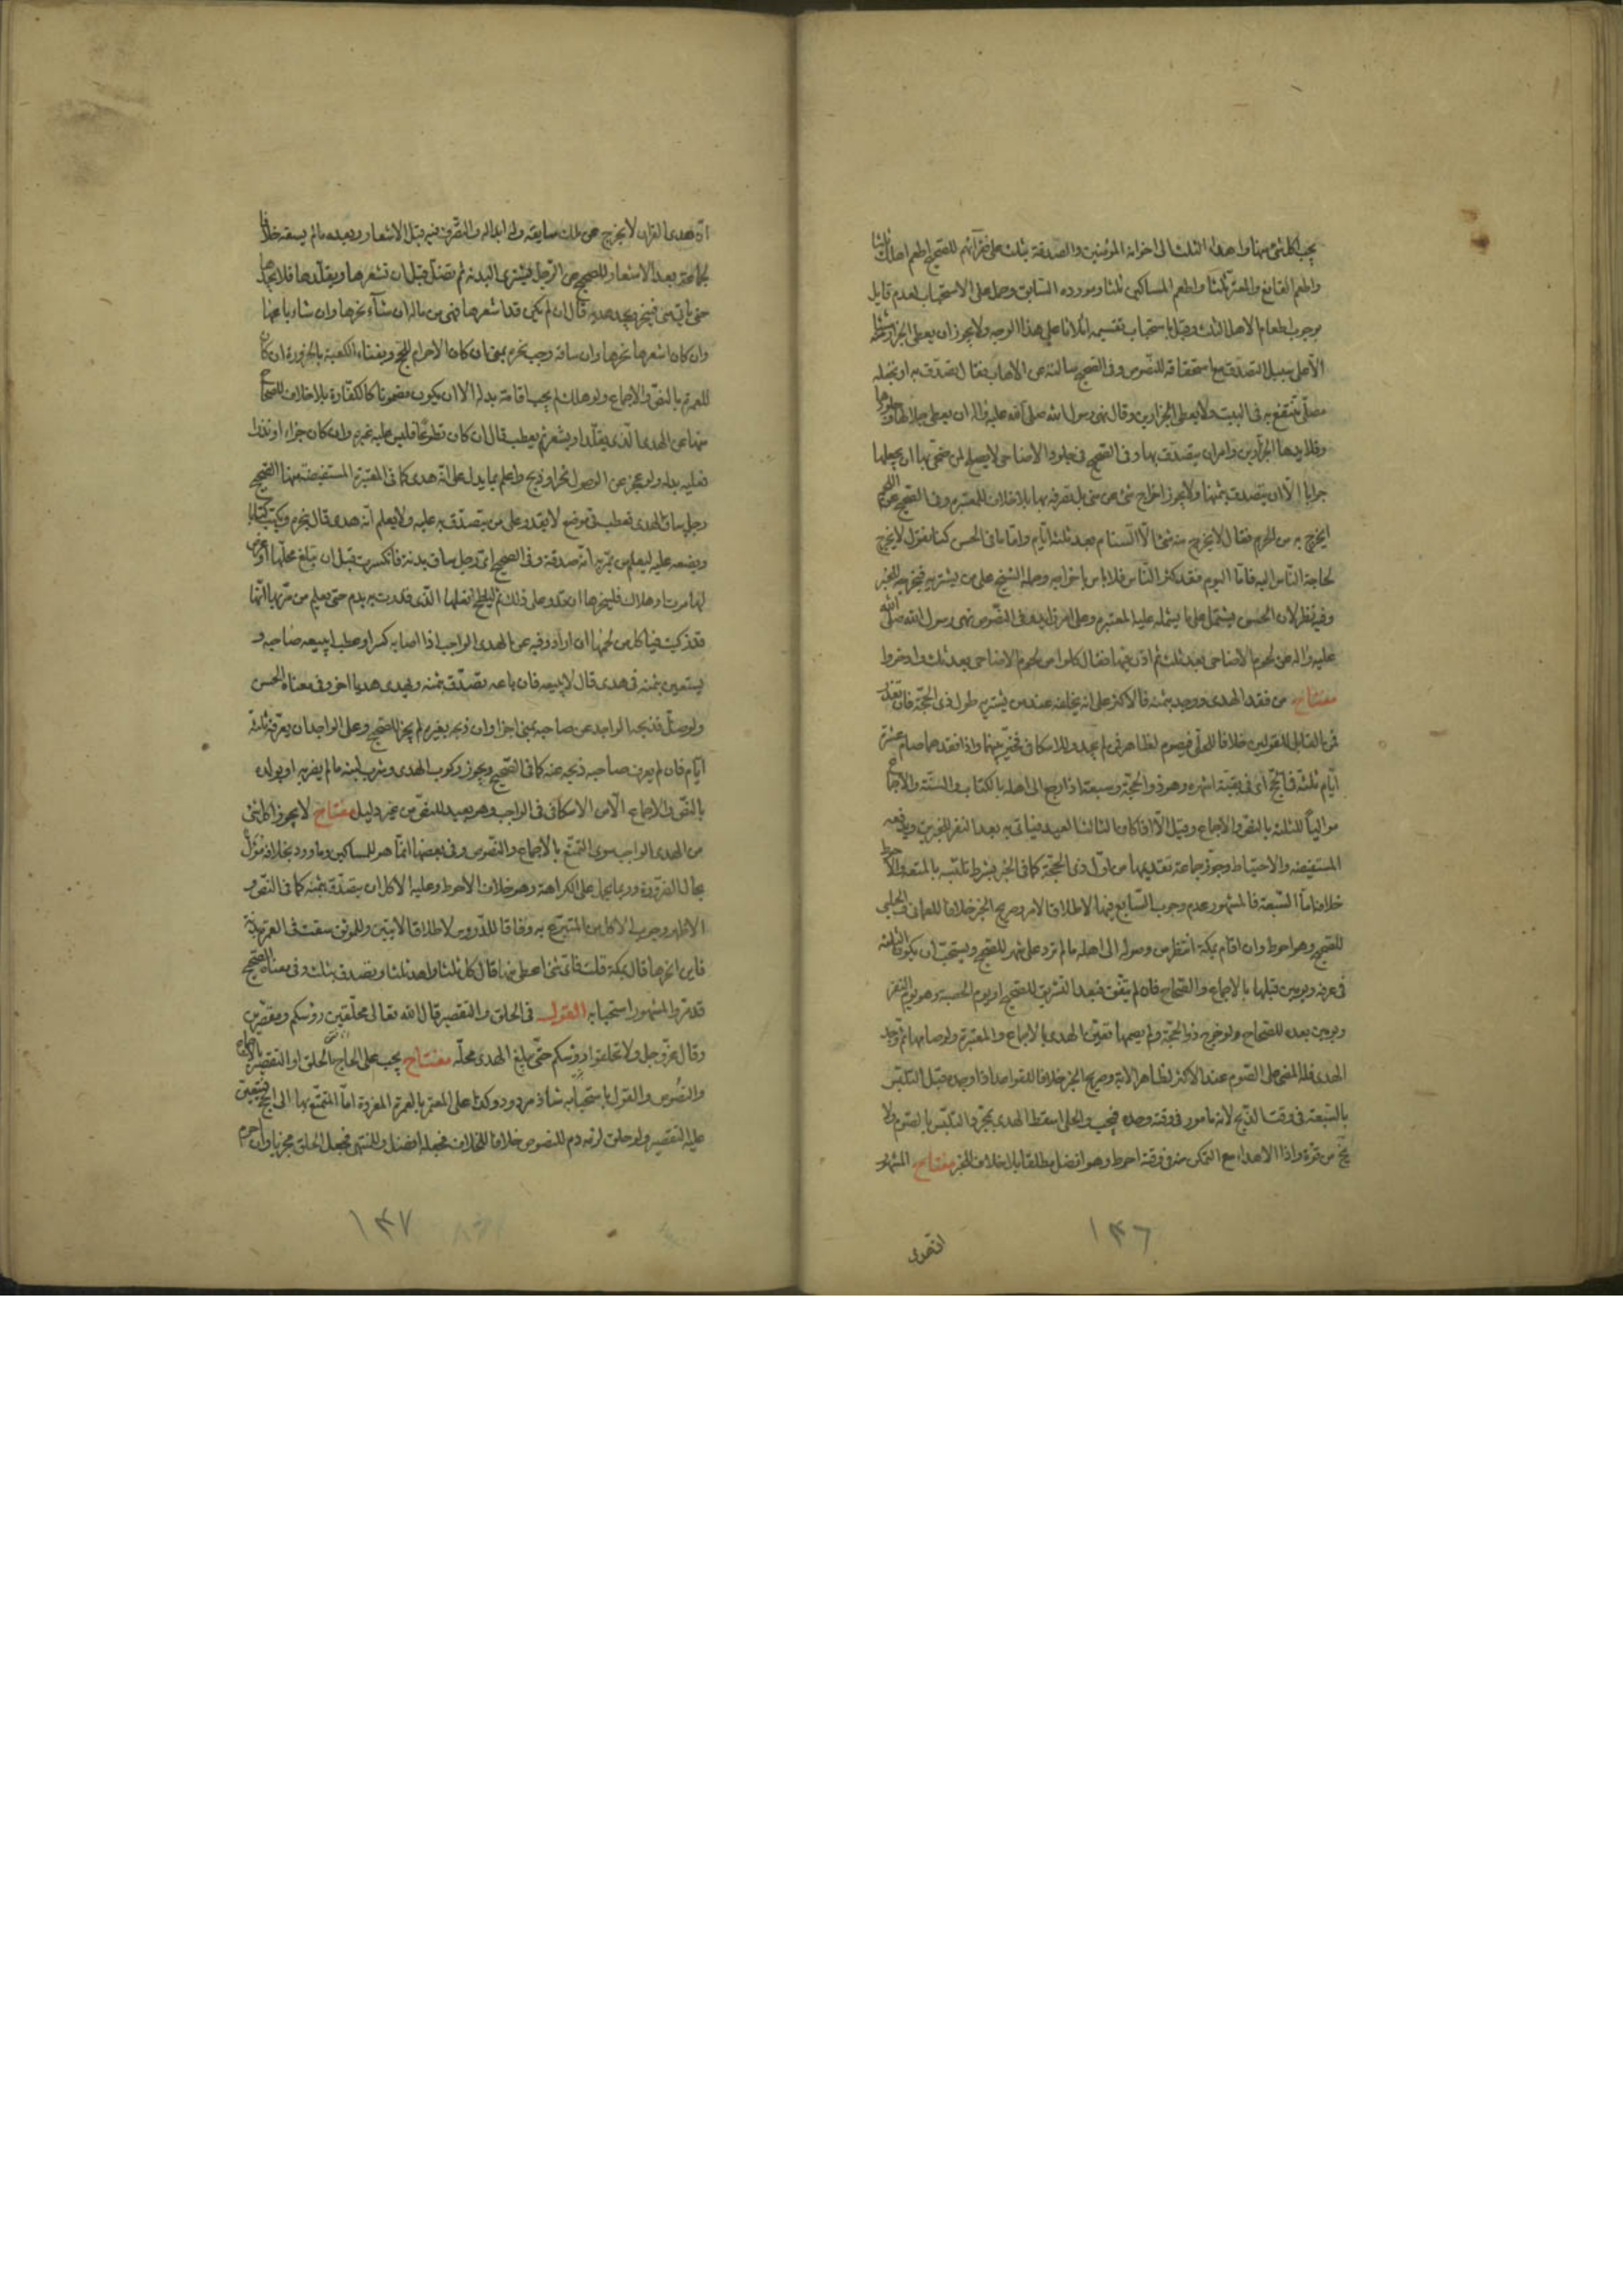 يجب اكل شئ منها واهداء الثلث الى اخوانه المؤمنين والصدقة بثلث على فقرائهم للصحيح اطعم اهلك ثلثا
واطعم القانع والمعتر ثلثا واطعم المساكين ثلثا ومورده السابق وحمل على الاستحباب لعدم قايل
بوجوب اطعام الاهل الثلث وقيل باستحباب تقسيمه اثلاثا على هذا الوجه ولا يجوز ان يعطى الجزار منها شيئا
الا على سبيل التصدق مع استحقاقه للنصوص وفى الصحيح سالته عن الاهاب فقال تصدق به او تجعله
مصلى تنتفع به فى البيت ولا يعطى الجزارين وقال نهى رسول الله صلى الله عليه واله ان يعطى جلالها وجلودها
وقلايدها الجزارين وامر ان يتصدق بها وفى الصحيح فى جلود الاضاحى لا يصلح لمن ضحى بها ان يجعلها
جرابا الا ان يتصدق بثمنها ولا يجوز اخراج شئ من منى بل تصرفه بها بلا خلاف للمعتبرة وفى الصحيح عن اللحم
ايخرج به من الحرم فقال لا يخرج منه شئ الا السنام بعد ثلثة ايام واما ما فى الحسن كنا نقول لا يخرج
لحاجة الناس اليه فاما اليوم فقد كثر الناس فلا باس باخراجه وحمله الشيخ على من يشتريه فيخرجه للخبر
وفيه نظر لان الحسن يشتمل على ما يشمله عليه المعتبرة وعلى امر زايد وفى النصوص نهى رسول الله صلى الله
عليه واله عن لحوم الاضاحى بعد ثلث ثم اذن فيها فقال كلوا من لحوم الاضاحى بعد ثلث وادخروا
مفتاح من فقد الهدى ووجد ثمنه فالاكثر على انه يخلفه عند من يشتريه طول ذى الحجة فان تعذر
فمن القابل للقولين خلافا للحلى فيصوم لظاهر فمن لم يجد وللاسكافى فخير بينهما واذا فقدهما صام عشرة
ايام ثلثة فى الحج اى فى بقية اشهره وهو ذو الحجة وسبعة اذا رجع الى اهله بالكتاب والسنة والاجماع
مواليا للثلثة بالنص والاجماع وقيل الا اذا كان الثالث العيد فياتى به بعد النفر للخبرين ويدفعه
المستفيضة والاحتياط وجوز جماعة تقديمها من اول ذى الحجة كما فى الخبر بشرط تلبسه بالمتعة والاحوط
خلافه اما السبعة فالمشهور عدم وجوب التتابع فيها لاطلاق الامر وصريح الخبر خلافا للعمانى والحلبى
للصحيح وهو احوط وان اقام بمكة انتظر من وصوله الى اهله ما لم تزد على شهر للصحيح ويستحب ان يكون الثلثة
فى عرفة ويومين قبلها بالاجماع والصحاح فان لم يتفق فبعد التشريق للصحيح او يوم الحصبة وهو يوم النفر
ويومين بعده للصحاح ولو خرج ذو الحجة ولم يصمها تعين الهدى بالاجماع والمعتبرة ولو صامها ثم وجد
الهدى فله المضى على الصوم عند الاكثر لظاهر الاية وصريح الخبر خلافا للقواعد اذا وجده قبل التلبس
بالسبعة فى وقت الذبح لانه مامور فى وقته وحده فيجب والحلى اسقط الهدى بمجرد التلبس بالصوم ولا
يخ من قوة واذا الاهداء مع التمكن منه فى وقته احوط وهو افضل مطلقا بلا خلاف للخبر مفتاح المشهور
ان هدى
١٣٦
ان هدى القران لا يخرج عن ملك سايقه وله ابداله والتصرف فيه قبل الاشعار وبعده ما لم يسقه خلافا
لجماعة بعد الاشعار للصحيح عن الرجل يشترى البدنة ثم تضل قبل ان تشعرها ويقلدها فلا يجدها
حتى ياتى منى فينحر ويجد هديه قال ان لم يكن قد اشعرها فهى من ماله ان شاء نحرها وان شاء باعها
وان كان اشعرها نحرها وان ساقه وجب نحره بمنى ان كان الاحرام للحج وبفناء الكعبة بالحزورة ان كان
للعمرة بالنص والاجماع ولو هلك لم يجب اقامة بدله الا ان يكون مضمونا كالكفارة بلا خلاف للصحاح
منها عن الهدى الذى يقلد او يشعر ثم يعطب قال ان كان تطوعا فليس عليه غيره وان كان جزاء او نذرا
فعليه بدله ولو عجز عن الوصول نحر او ذبح واعلم بما يدل على انه هدى كما فى المعتبرة المستفيضة منها الصحيح
رجل ساق الهدى فعطب فى موضع لا يقدر على من يتصدق به عليه ولا يعلم انه هدى قال ينحره ويكتب كتابا
ويضعه عليه ليعلم من يمر به انه صدقة وفى الصحيح اى رجل ساق بدنة فانكسرت قبل ان تبلغ محلها او عرض
لها موت او هلاك فلينحرها ان قدر على ذلك ثم ليلطخ نعلها الذى قلدت به بدم حتى يعلم من مر بها انها
قد ذكيت فياكل من لحمها ان اراد وفيه عن الهدى الواجب اذا اصابه كسر او عطب ايبيعه صاحبه و
يستعين بثمنه فى هدى قال لا يبيعه فان باعه تصدق بثمنه وليهدى هديا اخر وفى معناه الحسن
ولو ضل فذبحه الواجد عن صاحبه بمنى اجزا وان ذبحه بغيره لم يجز للصحيح وعلى الواجد ان يعرفه ثلثة
ايام فان لم يعرف صاحبه ذبحه عنه كما فى الصحيح ويجوز ركوب الهدى وشرب لبنه ما لم يضر به او بولده
بالنص والاجماع الا من الاسكافى فى الواجب وهو بعيد للنص من غير دليل مفتاح لا يجوز اكل شئ
من الهدى الواجب سوى التمتع بالاجماع والنصوص وفى بعضها انما هو للمساكين وما ورد بخلافه مؤول
بحال الضرورة وربما يحمل على الكراهة وهو خلاف الاحوط وعليه الاكل ان يتصدق بثمنه كما فى النص و
الاظهر وجوب الاكل من المتبرع به وفاقا للدروس لاطلاق الايتين وللموثق سقت فى العمرة بدنة
فاين انحرها قال بمكة قلت فاى شئ اعطى منها قال كل ثلثا واهد ثلثا وتصدق بثلث وفى معناه الصحيح
قد مر والمشهور استحبابه القول فى الحلق والتقصير قال الله تعالى محلقين رؤسكم ومقصرين
وقال عز وجل ولا تحلقوا رؤسكم حتى يبلغ الهدى محله مفتاح يجب على الحاج الحلق او التقصير بالاجماع
والنصوص والقول باستحبابه شاذ مردود وكذا على المعتمر بالعمرة المفردة اما المتمتع بها الى الحج فيتعين
عليه التقصير ولو حلق لزمه دم للنصوص خلافا للخلاف فجعله افضل وللمنتهى فجعل الحلق مجزيا وان حرم
١٣٧